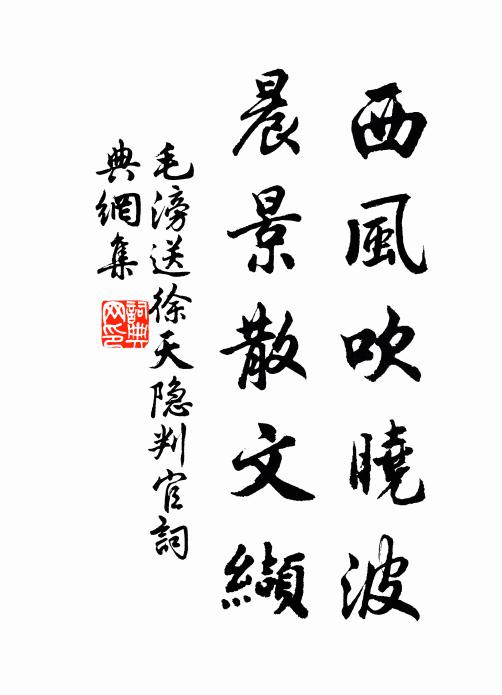 西風吹曉波
晨景散文纈
毛滂送徐天隐判官詞
典網集
詞典
网印